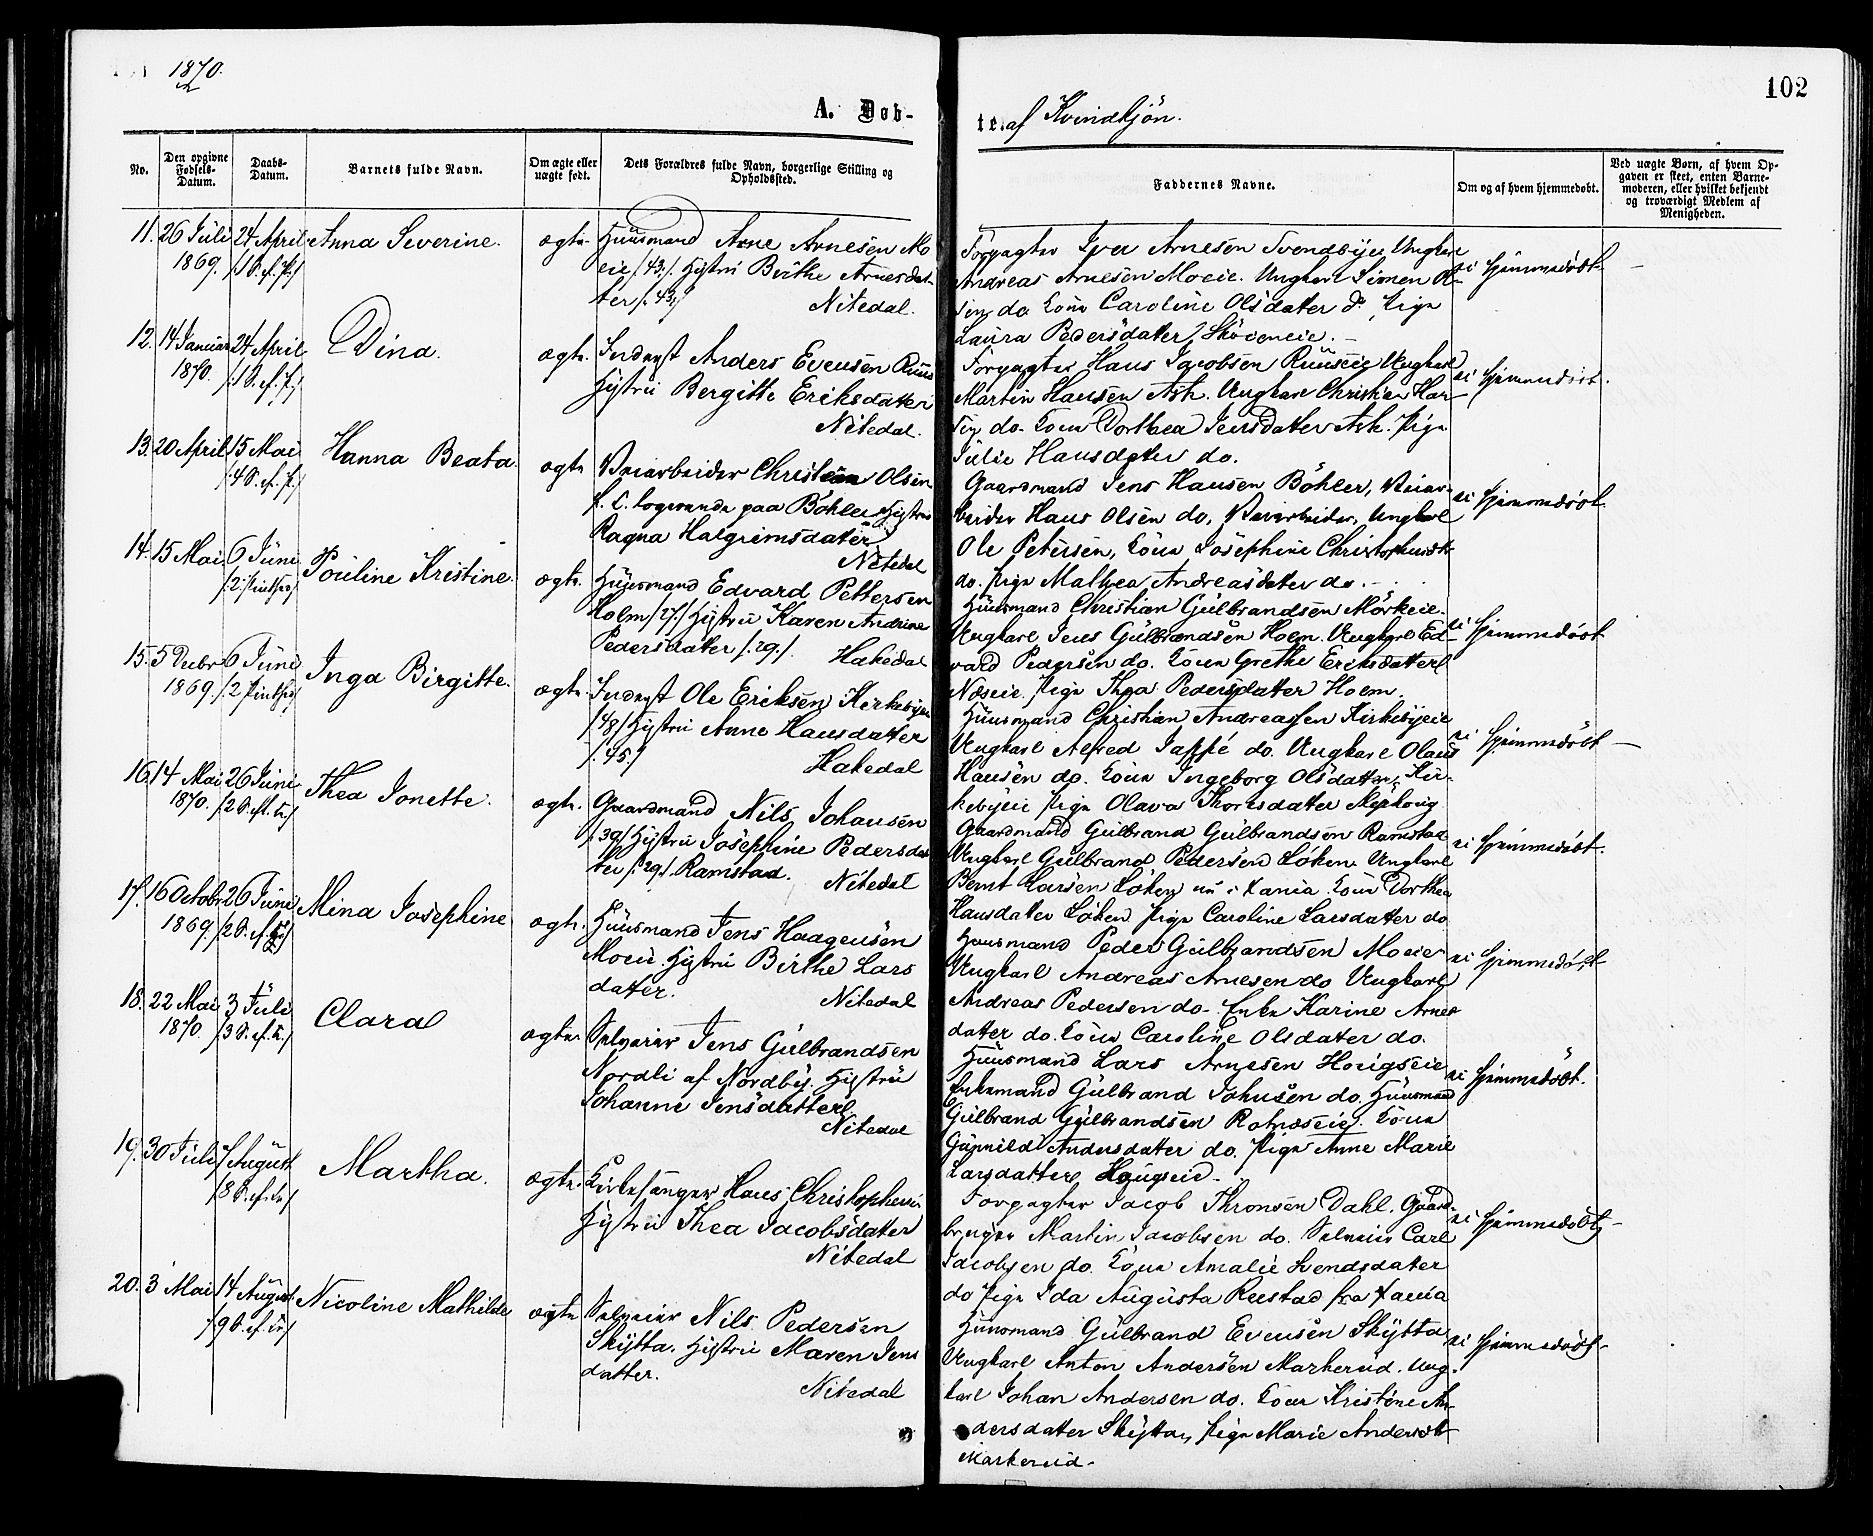 1870.
102
A. Døb-
te. af Kvindkjön.
No.
Den opgivne Fødsels-Datum.
Daabs-Datum.
Barnets fulde Navn.
Om ægte eller uægte født.
Dets Forældres fulde Navn, borgerlige Stilling og Opholdssted.
Faddernes Navne.
Om og af hvem hjemmedøbt.
Ved uægte Børn, af hvem Opgaven er skeet, enten Barnemoderen, eller hvilket bekjendt og troværdigt Medlem af Menigheden.
11. 26 Juli 1869. 24 April /1 S. ef. P./ Anna Severine. ægte.
Huusmand Arne Arnesen Mo
eie /43./ Hustru Birthe Arnesdat-
ter /:43/ Nitedal.
Forpagter Iver Arnesen Svendbye Ungkarl
Andreas Arnesen Moeie. Ungkarl Simen Ol-
sen do. Kone Caroline Olsdatter do Pige
Laura Pedersdatter Skøieneie.
ei hjemmedøbt.
12. 14 Januar 1870. 24 April /1 S. ef. P./ Dina. ægte.
Inderst Anders Evensen Ruus
Hustru Bergitte Eriksdatter
Nitedal.
Forpagter Hans Jacobsen Ruuseie Ungkarl
Martin Hansen Ask. Ungkarl Christian Han-
sen do. Kone Dorthea Jensdatter Ask. Pige
Julie Hansdatter do.
ei hjemmedøbt.
13. 20 April 15 Mai /4 S. ef. P./ Hanna Beata. ægte
Veiarbeider Christian Olsen
f. t. logerende paa Böhler Hustru
Ragna Halgrimsdatter
Nitedal
Gaardmand Jens Hansen Böhler, Veiar-
beider Hans Olsen do, Veiarbeider, Ungkarl
Ole Petersen, Kone Josephine Christophersdtr
do. Pige Mathea Andreasdatter do.
ei hjemmedøbt
14. 15 Mai 6 Juni /2 Pintsed/ Pouline Kristine. ægte.
Huusmand Edvard Pettersen
Holm /27/ Hustru Karen Andrine
Pedersdatter /:29./. Hakedal
Huusmand Christian Gulbrandsen Mörkeie.
Ungkarl Jens Gulbrandsen Holm. Ungkarl Ed-
vard Pedersen do. Kone Grethe Eriksdatter
Næseie. Pige Thea Pedersdatter Holm.
ei hjemmedøbt
15. 5 Decbr 1869. 6 Juni /2 Pintsed/ Inga Birgitte. ægte.
Inderst Ole Eriksen Kirkebye
/48/ Hustru Anne Hansdatter
/.45./ Hakedal
Huusmand Christian Andreassen Kirkebyeie
Ungkarl Alfred Jaffé do. Ungkarl Olaus
Hansen do. Kone Ingeborg Olsdatter, Kir-
kebyeie Pige Olava Thoresdatter
ei hjemmedøbt
16. 14 Mai 1870. 26 Juni /2 S. ef. Tr./ Thea Jonette. ægte.
Gaardmand Nils Johansen
/39/ Hustru Josephine Pedersdat
ter /:29./. Ramstad. Nitedal
Gaardmand Gulbrand Gulbrandsen Ramstad
Ungkarl Gulbrand Pedersen Løken Ungkarl
Bernt Larsen Løken nu i Xania. Kone Dorthea
Hansdatter Løken Pige Caroline Larsdatter do
ei hjemmedøbt.
17. 16 Octobr 1869. 26 Juni /2 S. ef. Tr/ Mina Josephine ægte.
Huusmand Jens Haagensen
Moeie. Hustru Birthe Lars
datter. Nitedal
Huusmand Peder Gulbrandsen Moeie
Ungkarl Andreas Arnesen do Ungkarl
Andreas Pedersen do. Enke Karine Arnes
datter do. Kone Caroline Olsdatter do.
ei hjemmedøbt
18. 22 Mai 1870. 3 Juli /3 S. ef. Tr./ Clara ægte.
Selveier Jens Gulbrandsen
Nordli af Nordby. Hustru
Johanne Jensdatter
Nitedal
Huusmand Lars Arnesen Hougseie
Enkemand Gulbrand Johnsen do. Huusmand
Gulbrand Gulbrandsen Rotnæseie. Kone
Gunnild Andersdatter do. Pige Anne Marie
Larsdatter Hougseie.
ei hjemmedøbt.
19. 30 Juli 7 August /8 S. ef. Tr/ Martha. ægte.
Kirkesanger Hans Christophersen
Hustru Thea Jacobsdatter
Nitedal
Forpagter Jacob Thronsen Dahl. Gaard-
bruger Martin Jacobsen do. Selveier Carl
Jacobsen do. Kone Amalie Svendsdatter
do Pige Ida Augusta Rustad fra Xania
ei hjemmedøbt
20. 3 Mai 14 August /9 S. ef. Tr/ Nicoline Mathilde ægte
Selveier Nils Pedersen
Skytta. Hustru Maren Jens
datter.
Nitedal
Huusmand Gulbrand Evensen Skytta
Ungkarl Anton Andersen Markerud. Ung-
karl Johan Andersen do. Kone Kristine An-
dersdatter Skytta, Pige Marie Andersdtr
Markerud.
ei hjemmedøbt.